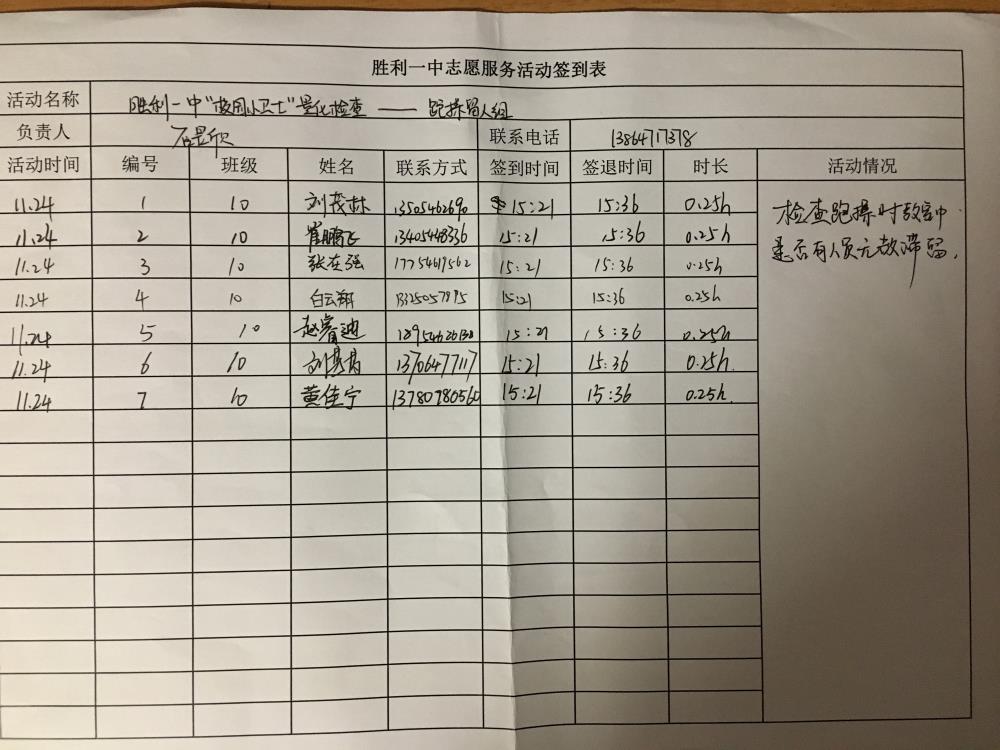 胜利一中志愿服务活动签到表
活动名称 胜利一中"校园小卫士"量化检查——跑操留人组
负责人 石昱欣 联系电话 13864717378
活动时间 编号 班级 姓名 联系方式 签到时间 签退时间 时长 活动情况
11.24 1 10 刘茂林 13505462690 15:21 15:36 0.25h 检查跑操时教室中
11.24 2 10 崔鹏飞 13405448336 15:21 15:36 0.25h 是否有人员无故滞留.
11.24 3 10 张在强 17754619562 15:21 15:36 0.25h
11.24 4 10 白云翔 15:21 15:36 0.25h
11.24 5 10 赵睿迪 15:21 15:36 0.25h
11.24 6 10 13706477117 15:21 15:36 0.25h.
11.24 7 10 黄佳宁 13780780560 15:21 15:36 0.25h.